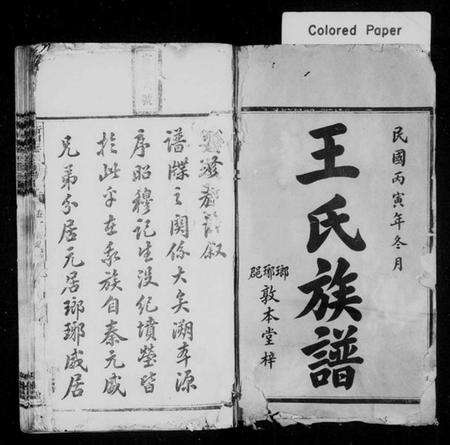 Colored Paper
民國丙寅年冬月
王氏族譜
瑯琊郡
敦本堂梓
號
叙
譜牒之關係大矣溯本源
序昭穆記生没紀墳塋皆
於此乎在我族自秦元威
兄弟分居元居瑯琊威居